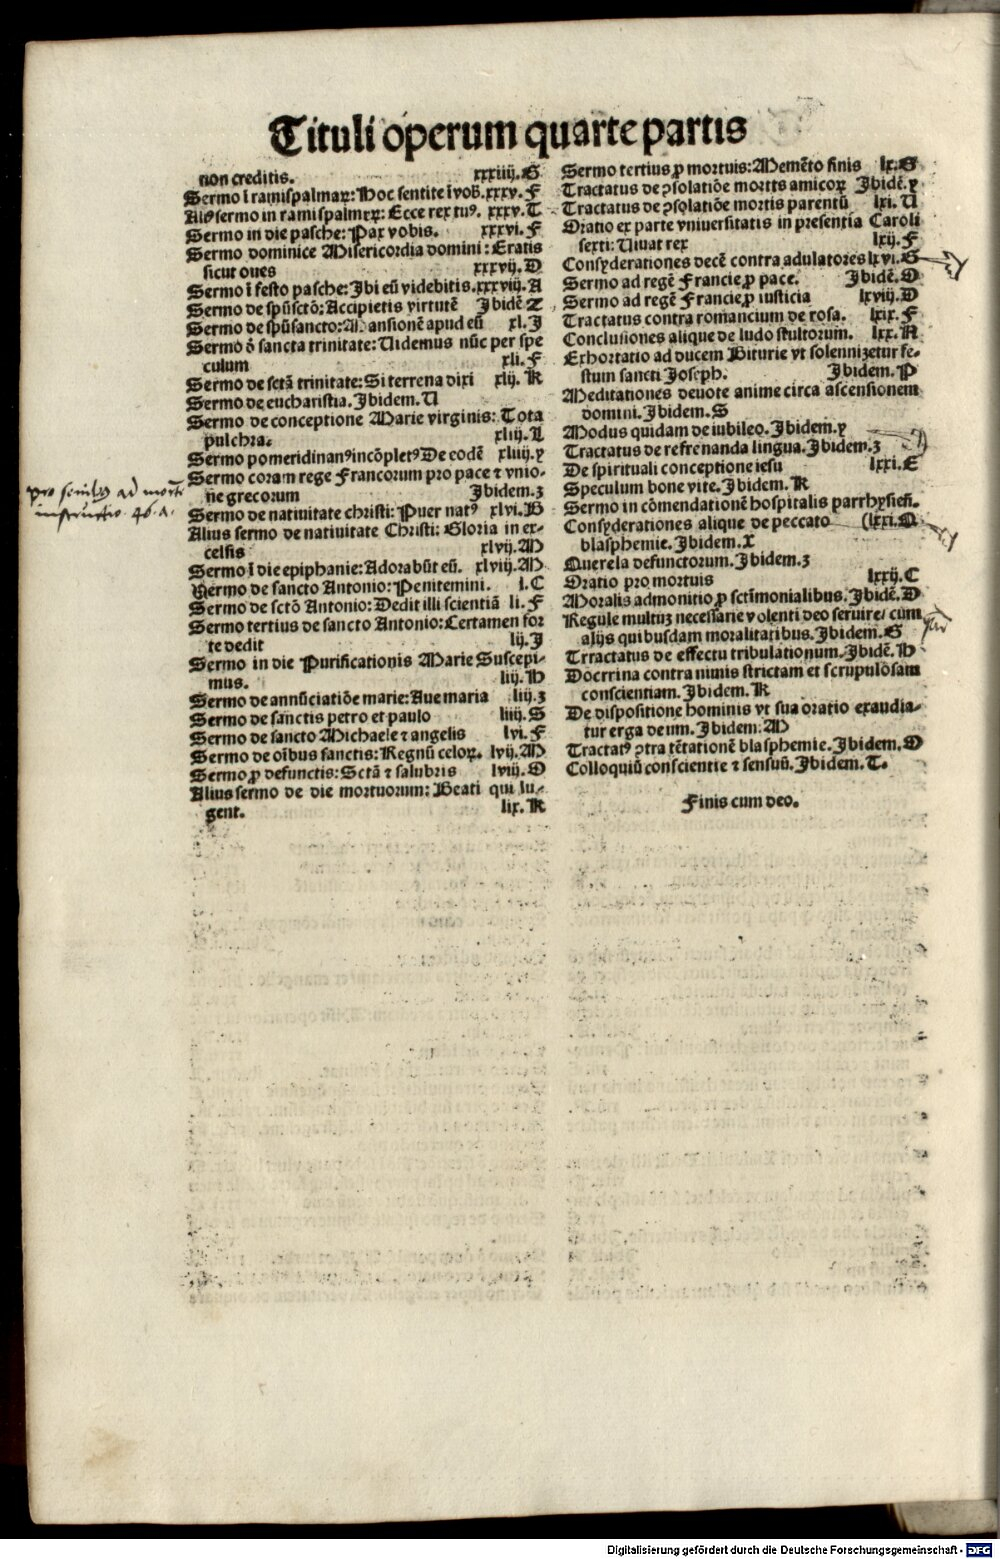 Tituli operum quarte partis
non creditis. xxxiiij.G
Sermo ī ramispalmaꝝ: Hoc sentite ī vob. xxxv.F
Aliꝰ sermo in ramispalmꝝ: Ecce rex tuꝰ. xxxv.T
Sermo in die pasche: Pax vobis. xxxvi.F
Sermo dominice Misericordia domini: Eratis
sicut oues xxxvij.D
Sermo ī festo pasche: Ibi eū videbitis. xxxviij.A
Sermo de spūsctō: Accipietis virtutē Ibidē Z
Sermo de spūsancto: Mansionē apud eū xl.J
Sermo ō sancta trinitate: Uidemus nūc per spe
culum xli.F
Sermo de sctā trinitate: Si terrena dixi xlij.K
Sermo de eucharistia. Ibidem.U
Sermo de conceptione Marie virginis: Tota
pulchra. xliij.L
Sermo pomeridinanꝰ incōpletꝰ De eodē xliiij.y
Sermo coram rege Francorum pro pace ⁊ vnio-
ne grecorum Ibidem.z
pro senibus ad mortē
instructio 46.a.
Sermo de natiuitate christi: Puer natꝰ xlvi.B
Alius sermo de natiuitate Christi: Gloria in ex-
celsis xlvij.M
Sermo ī die epiphanie: Adorabūt eū. xlviij.M
Sermo de sancto Antonio: Penitemini. l.C
Sermo de sctō Antonio: Dedit illi scientiā li.F
Sermo tertius de sancto Antonio: Certamen for
te dedit lij.J
Sermo in die Purificationis Marie Suscepi-
mus. liij.H
Sermo de annūciatiōe marie: Aue maria liij.z
Sermo de sanctis petro et paulo liiij.S
Sermo de sancto Michaele ⁊ angelis lvi.F
Sermo de oībus sanctis: Regnū celoꝝ. lvij.M
Sermo ꝓ defunctis: Sctā ⁊ salubris lviij.O
Alius sermo de die mortuorum: Beati qui lu-
gent. lix.K
Sermo tertius ꝓ mortuis: Memēto finis lx.G
Tractatus de ꝯsolatiōe mortis amicoꝝ Ibidē.y
Tractatus de ꝯsolatiōe mortis parentū lxi.U
Oratio ex parte vniuersitatis in presentia Caroli
sexti: Uiuat rex lxij.F
Consyderationes decē contra adulatores lxvi.G
Sermo ad regē Francie ꝓ pace. Ibidē.O
Sermo ad regē Francie ꝓ iusticia lxviij.D
Tractatus contra romancium de rosa. lxix.F
Conclusiones alique de ludo stultorum. lxx.N
Exhortatio ad ducem Biturie vt solennizetur fe-
stum sancti Joseph. Ibidem.P
Meditationes deuote anime circa ascensionem
domini. Ibidem.S
Modus quidam de iubileo. Ibidem.y
Tractatus de refrenanda lingua. Ibidem.z
De spirituali conceptione iesu lxxi.E
Speculum bone vite. Ibidem.K
Sermo in cōmendationē hospitalis parrhysieñ.
Consyderationes alique de peccato (lxxi.O
blasphemie. Ibidem.X
Querela defunctorum. Ibidem.z
Oratio pro mortuis lxxij.C
Moralis admonitio ꝓ sctīmonialibus. Ibidē.D
Regule multuꝫ necessarie volenti deo seruire, cum
alijs quibusdam moralitatibus. Ibidem.G
Trractatus de effectu tribulationum. Ibidē.H
Docrrina contra nimis strictam et scrupulosam
conscientiam. Ibidem.K
De dispositione hominis vt sua oratio exaudia-
tur erga deum. Ibidem: M
Tractatꝰ ꝯtra tētationē blasphemie. Ibidem.O
Colloquiū conscientie ⁊ sensuū. Ibidem.T.
Finis cum deo.
Digitalisierung gefördert durch die Deutsche Forschungsgemeinschaft - DFG